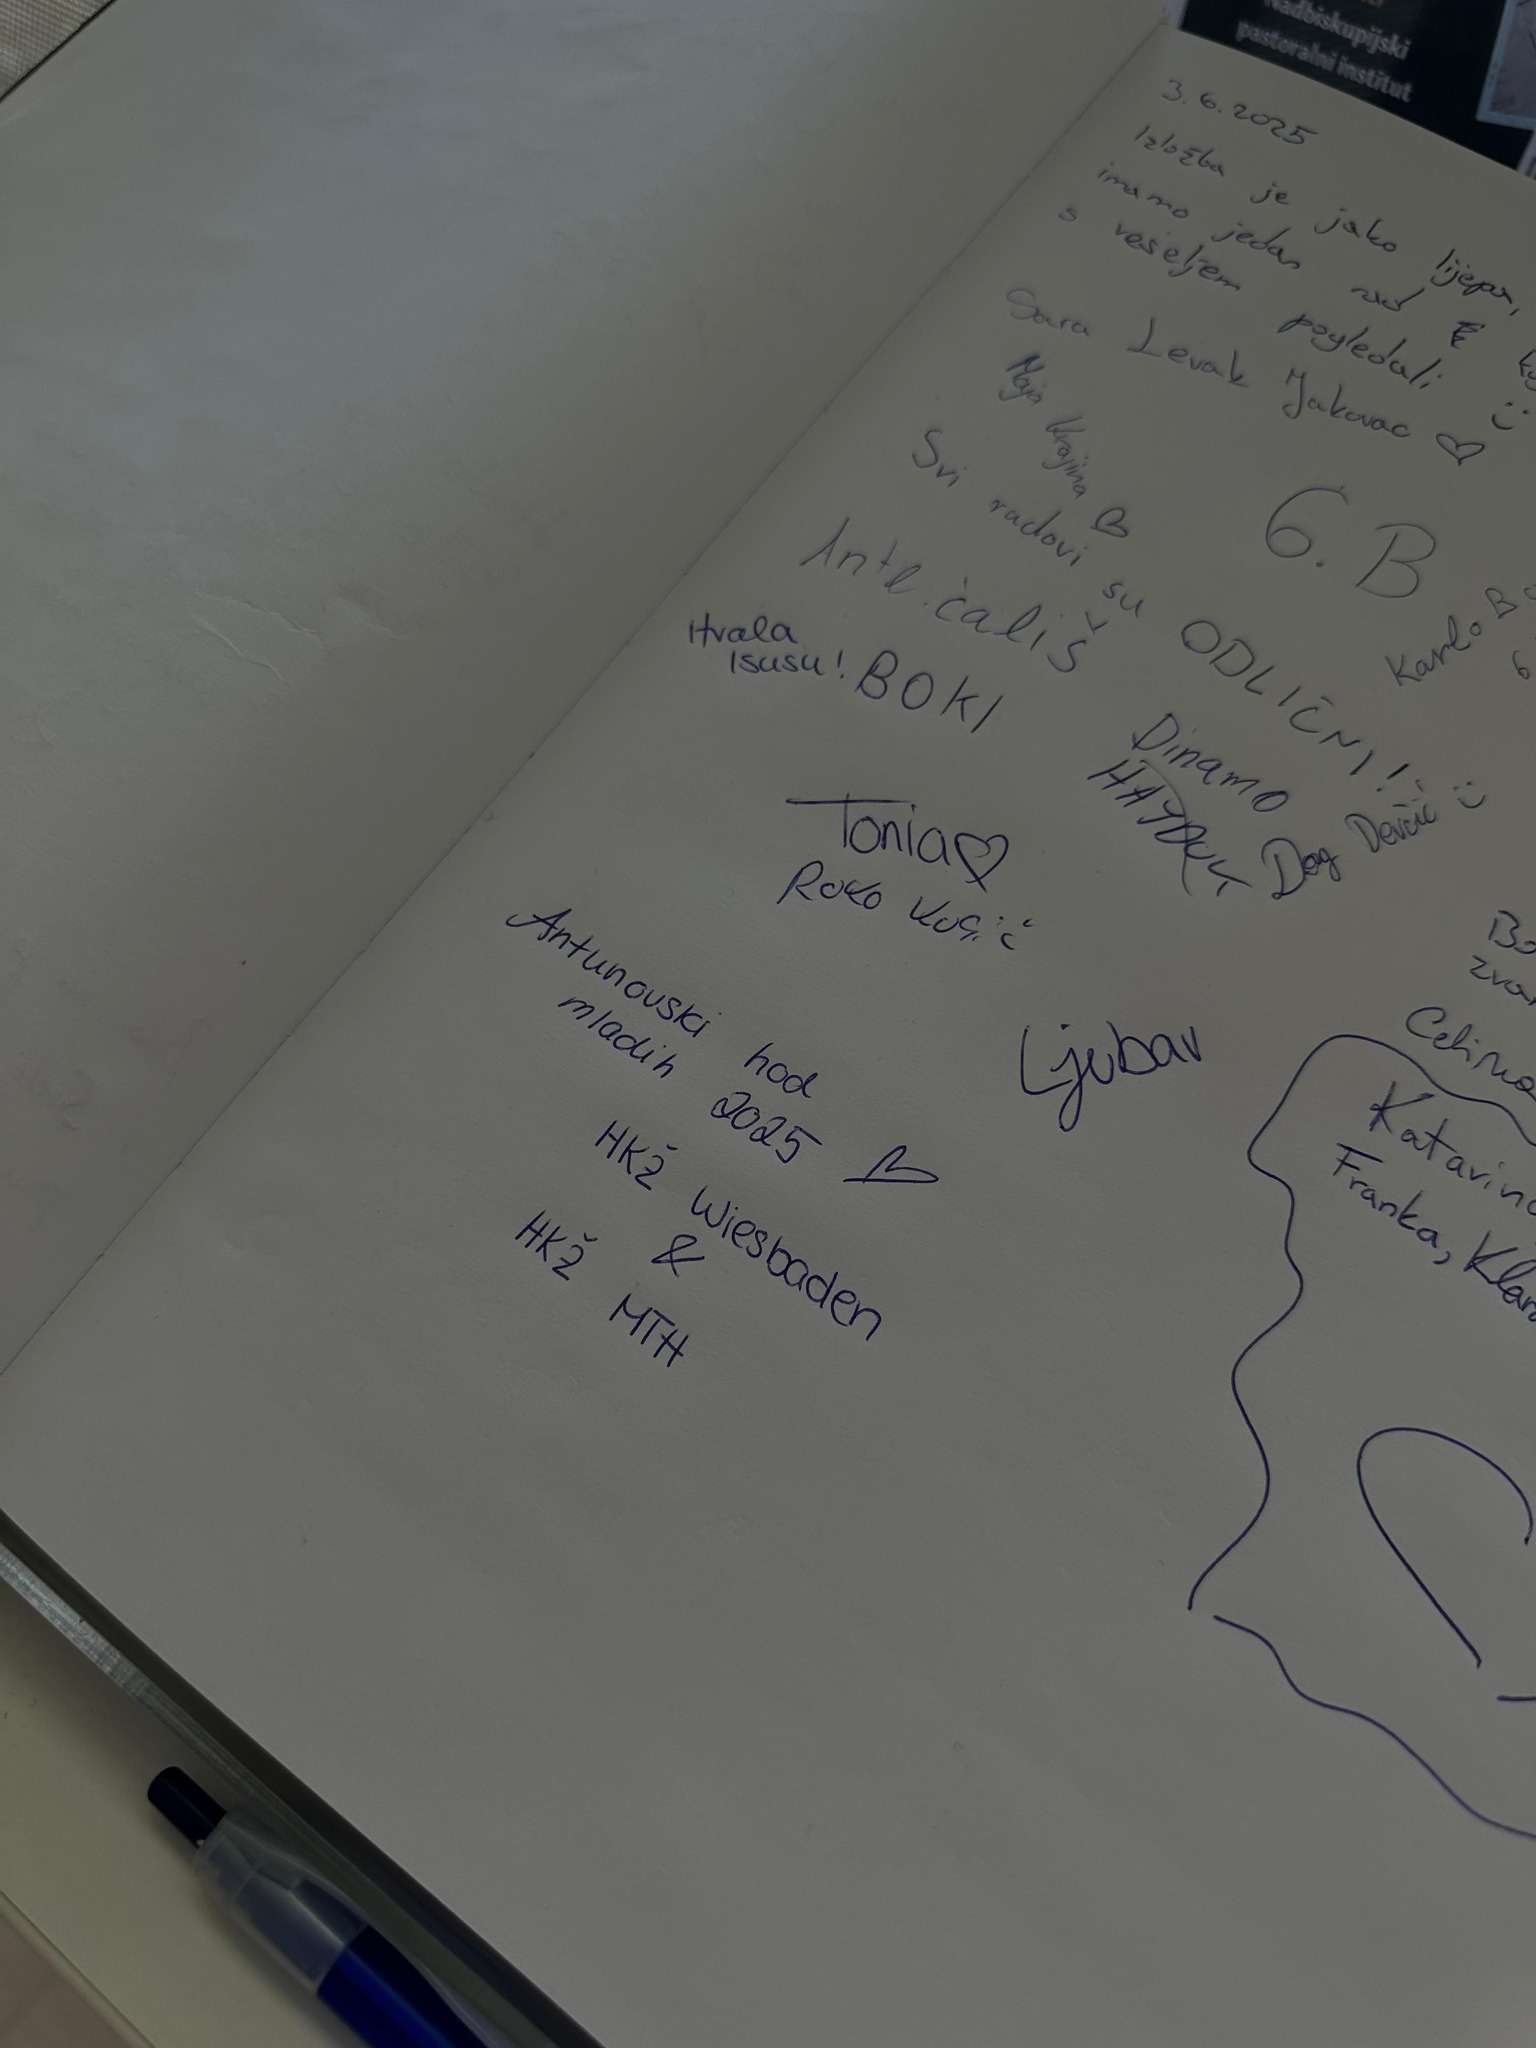 Nadbiskupijski
pastoralni institut
3.6.2025
Izložba je jako lijepa,
imamo jedan rad
s veseljem pogledali :)
Sara Levak Jakovac ♡
Maja Krajina ♡
6.B
Svi radovi su ODLIČNI! :)
Ante Ćališ
Karlo B
6
Hvala
Isusu!
BOKI
Dinamo
HAJDUK
Dag Devčić
Tonia♡
Roko
Antunovski hod
mladih 2025 ♡
HKŽ Wiesbaden
&
HKŽ MTH
Ljubav
Katarina
Franka, Klara